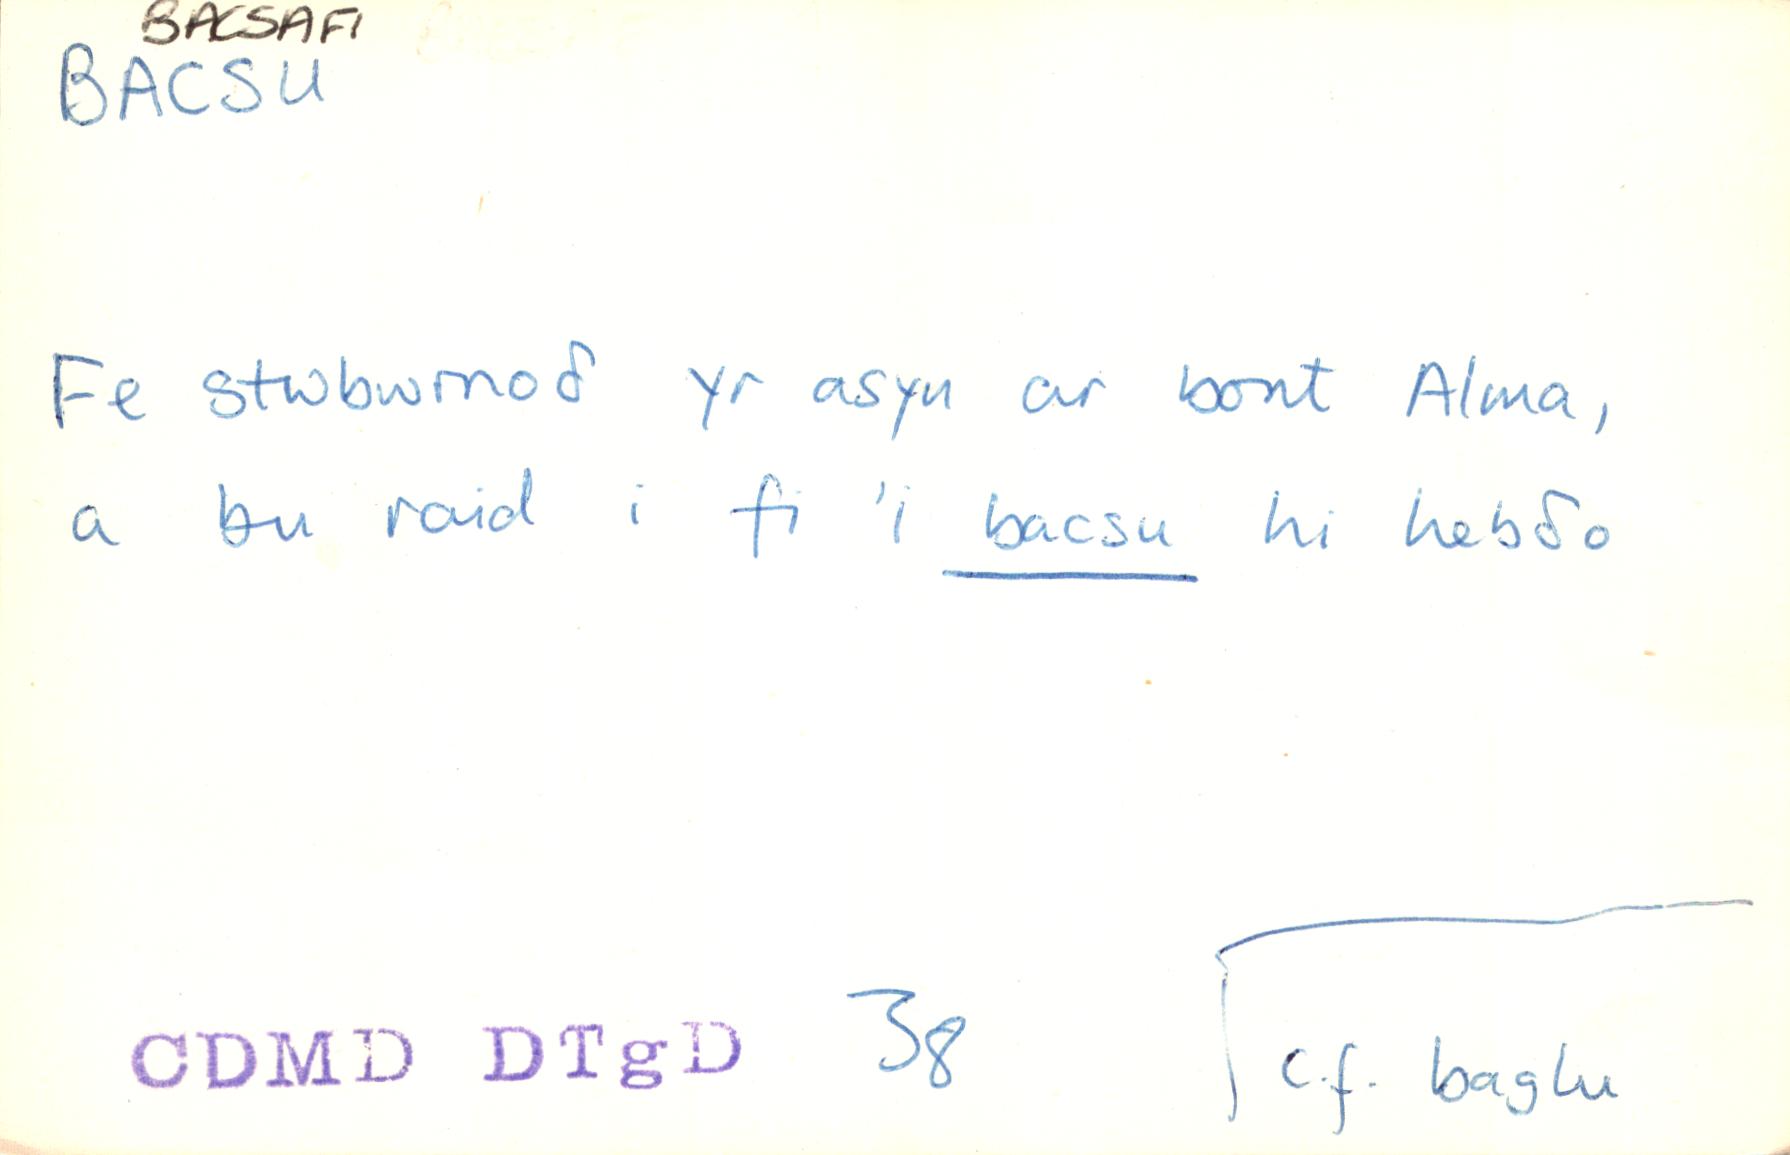 BACSAFI
BACSU
Fe stwbwrnoδ yr asyn ar bont Alma,
a bu raid i fi 'i bacsu hi hebδo
CDMD DTgD 38
c.f. baglu